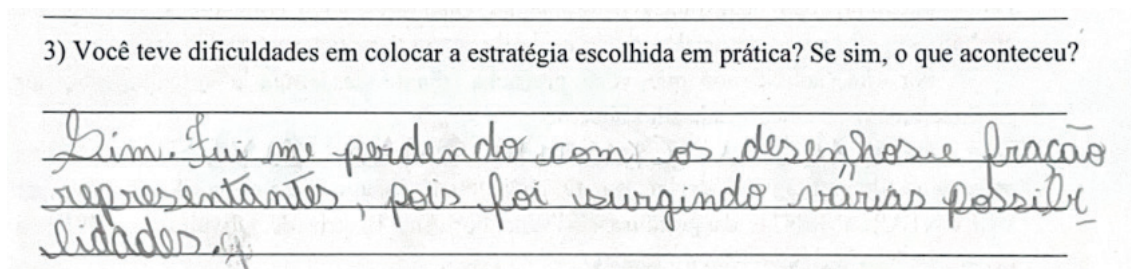 3) Você teve dificuldades em colocar a estratégia escolhida em prática? Se sim, o que aconteceu?
Sim. Fui me perdendo com os desenhos e fração
representantes, pois foi surgindo várias possibi
lidades.